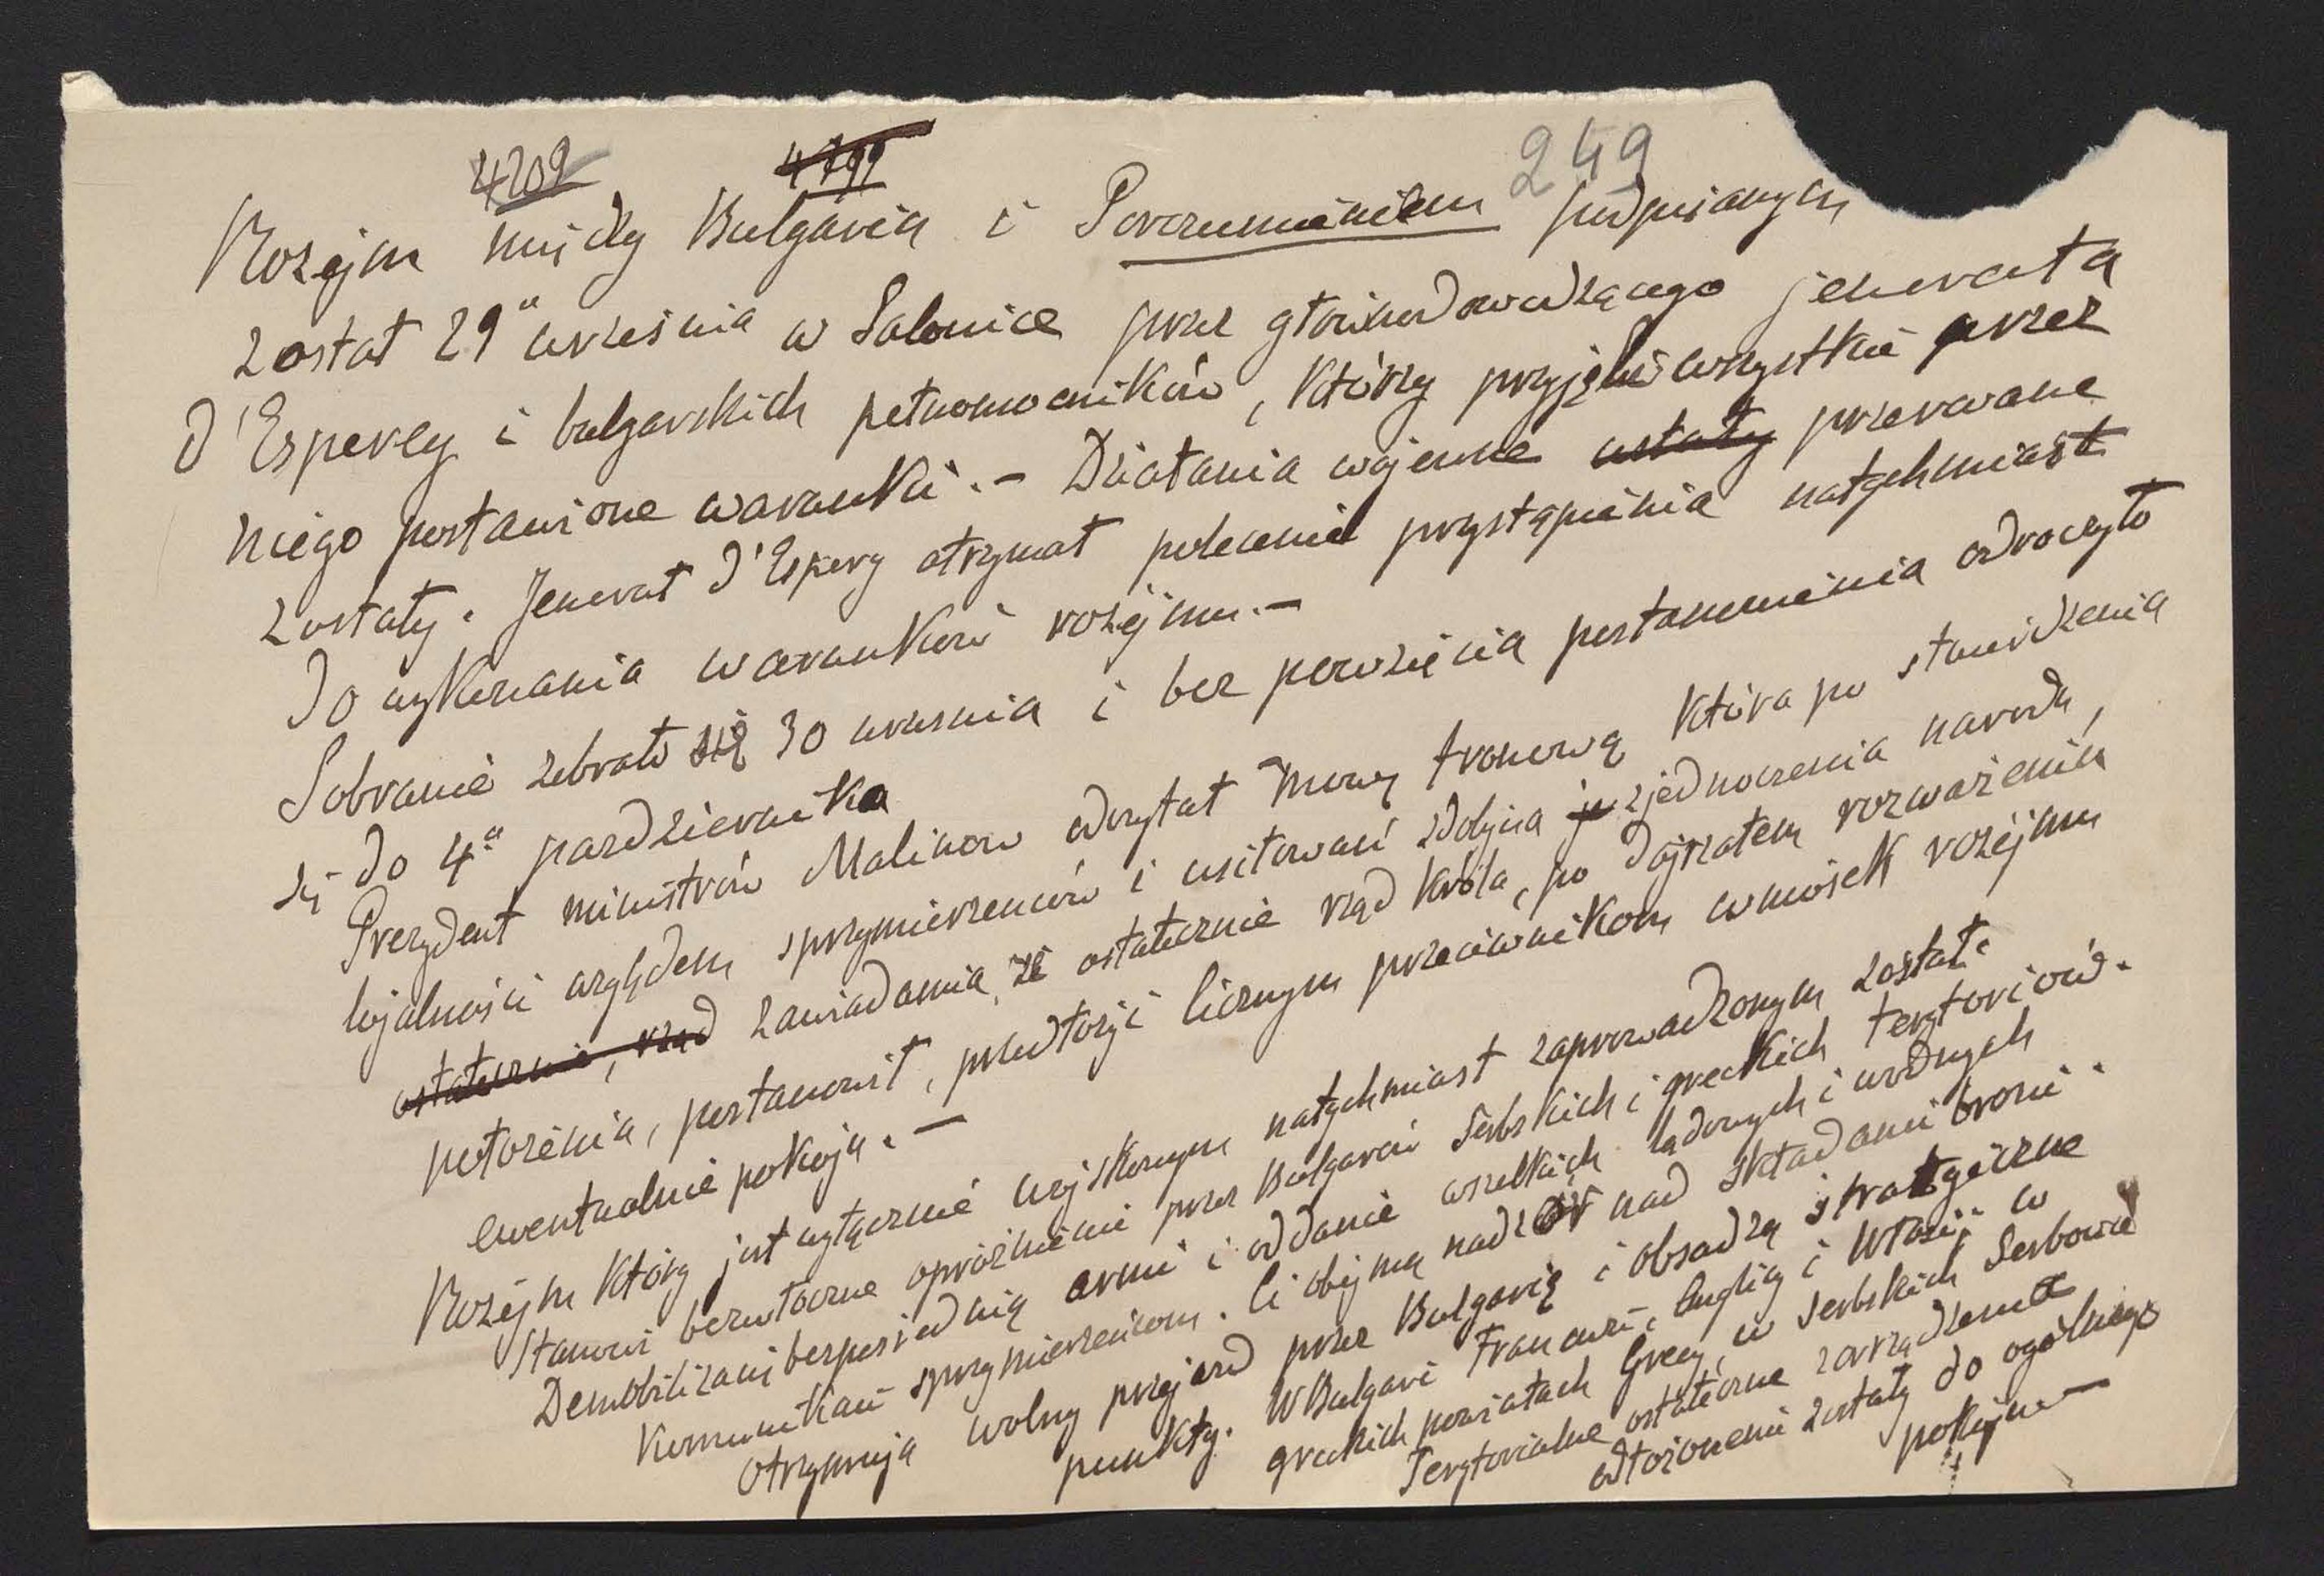 4209 4799 249
Rozejm między Bulgarią i Porozumieniem podpisanym
został 29º września w Salonice przez głównodowodzącego jenerała
d'Esperey i bulgarskich pełnomocników, którzy przyjęli wszystkie przez
niego postawione warunki.– Działania wojenne ustały przerwane
zostały. Jenerał d'Espery otrzymał polecenie przystąpienia natychmiast
do wykonania warunków rozejmu.–
Sobranie zebrało się 30 września i bez powzięcia postanowienia odroczyło
się do 4º października
Prezydent ministrów Malinow odczytał mowę tronową która po stwierdzenia
lojalności względem sprzymierzenców i usiłowań zdolna zjednoczenia narodu,
ostatecznie, rząd zawiadamia, że ostatecznie rząd króla, po dojrzałem rozważeniu
położenia, postanowił, przedłożyć licznym przeciwnikom wniosek rozejmu
ewentualnie pokoju.–
Rozejm który jest wyłącznie wojskowym natychmiast zaprowadzonym został.
Stanowi bezwłoczne opróżnienie przez Bulgarów Serbskich i greckich terytoriów.
Demobilizacyę bezpośrednią armii i oddanie wszelkich lądowych i wodnych
komunikacii sprzymierzeńcom. Ci obejmą nadzór nad składami broni.
Otrzymują wolny przejazd przez Bulgarię i obsadzą strategiczne
punkty. W Bulgarii Francuzi, Anglicy i Włosi, w
greckich powiatach Grecy, w Serbskich Serbowie
Terytorialne ostateczne zarządzenia
odłożonemi zostały do ogólnego
pokoju–